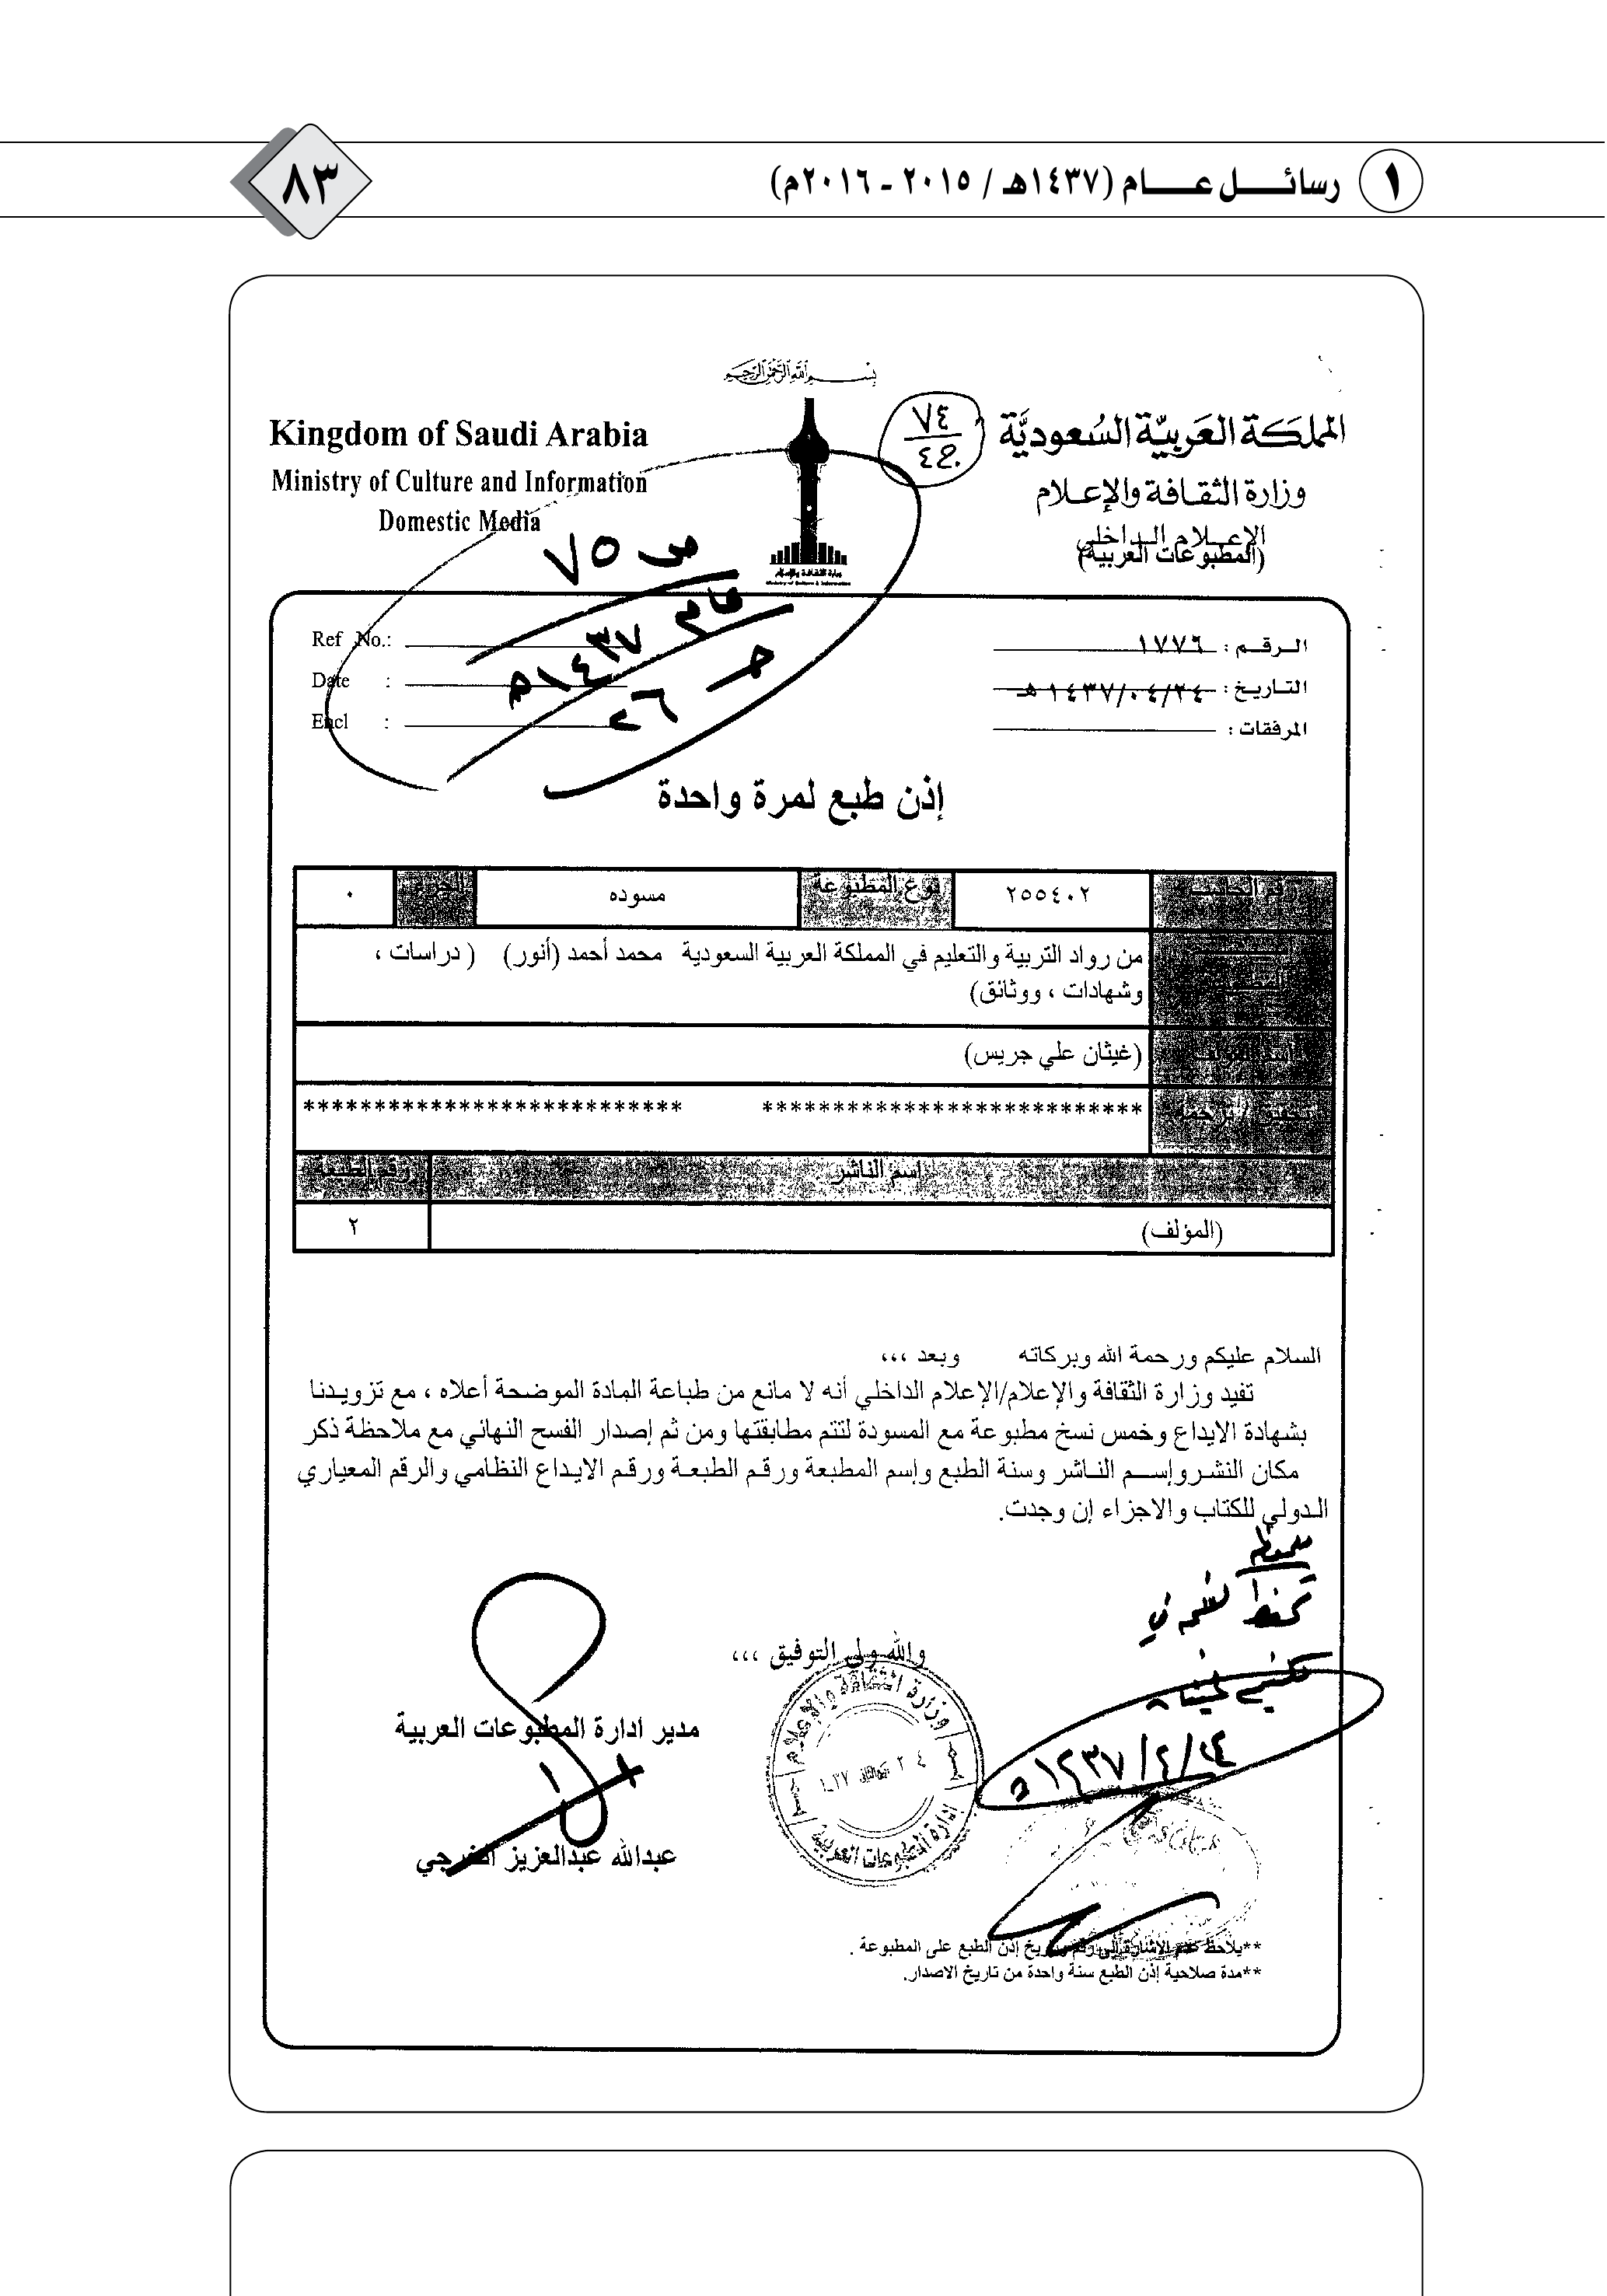 ١ رسائل عام (١٤٣٧هـ / ٢٠١٥ - ٢٠١٦م)
٨٣
بسم الله الرحمن الرحيم
المملكة العربية السعودية
وزارة الثقافة والإعلام
الإعلام الداخلي
(المطبوعات العربية)
٧٤
ج٤
Kingdom of Saudi Arabia
Ministry of Culture and Information
Domestic Media
وزارة الثقافة والإعلام
Ministry of Culture & Information
ص ٧٥
عام ١٤٣٧هـ
جـ ٢٦
الرقم : ١٧٧٦
التاريخ : ١٤٣٧/٠٤/٢٤ هـ
المرفقات :
Ref No.:
Date :
Encl :
إذن طبع لمرة واحدة
رقم الطلب ٢٥٥٤٠٢ نوع المطبوعة مسوده الجزء ٠
من رواد التربية والتعليم في المملكة العربية السعودية محمد أحمد (أنور) ( دراسات ،
وشهادات ، ووثائق)
اسم المؤلف (غيثان علي جريس)
************************** **************************
اسم الناشر رقم الطبعة
(المؤلف) ٢
السلام عليكم ورحمة الله وبركاته وبعد ،،،
تفيد وزارة الثقافة والإعلام/الإعلام الداخلي أنه لا مانع من طباعة المادة الموضحة أعلاه ، مع تزويدنا
بشهادة الايداع وخمس نسخ مطبوعة مع المسودة لتتم مطابقتها ومن ثم إصدار الفسح النهائي مع ملاحظة ذكر
مكان النشر وإسم الناشر وسنة الطبع وإسم المطبعة ورقم الطبعة ورقم الايداع النظامي والرقم المعياري
الدولي للكتاب والاجزاء إن وجدت.
والله ولي التوفيق ،،،
مدير ادارة المطبوعات العربية
وزارة الثقافة والاعلام
ادارة المطبوعات العربية
عبدالله عبدالعزيز
**يلاحظ عدم الاشارة إلى رقم وتاريخ إذن الطبع على المطبوعة .
**مدة صلاحية إذن الطبع سنة واحدة من تاريخ الاصدار.